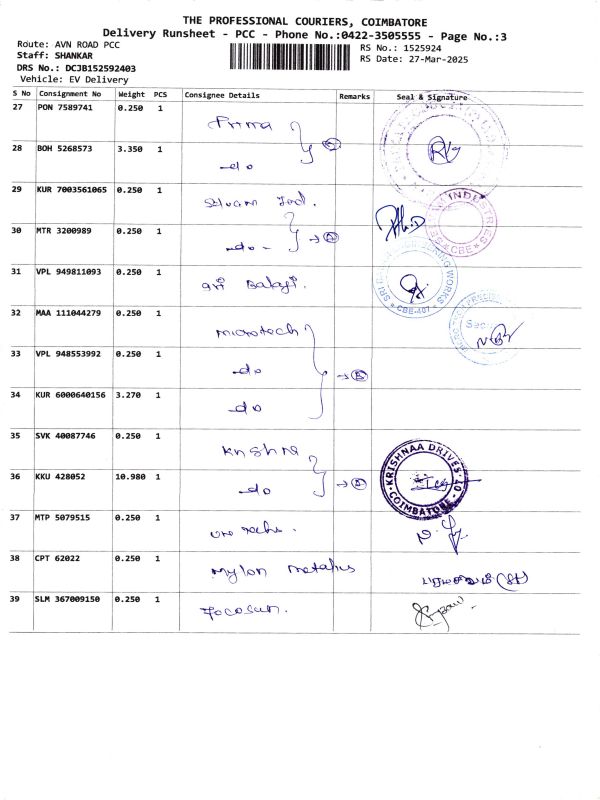 THE PROFESSIONAL COURIERS, COIMBATORE
Delivery Runsheet - PCC - Phone No.:0422-3505555 - Page No.:3
Route: AVN ROAD PCC
RS No.: 1525924
Staff: SHANKAR
RS Date: 27-Mar-2025
DRS No.: DCJB152592403
Vehicle: EV Delivery
S No Consignment No Weight PCS Consignee Details Remarks Seal & Signature
27 PON 7589741 0.250 1 Prima
28 BOH 5268573 3.350 1 -do
29 KUR 7003561065 0.250 1 Selvam Ind.
30 MTR 3200989 0.250 1 -do-
31 VPL 949811093 0.250 1 Sri Balaji.
32 MAA 111044279 0.250 1 microtech
33 VPL 948553992 0.250 1 -do
34 KUR 6000640156 3.270 1 -do
35 SVK 40087746 0.250 1 Krishna
36 KKU 428052 10.980 1 -do
KRISHNAA DRIVES
COIMBATORE - 07
37 MTP 5079515 0.250 1
38 CPT 62022 0.250 1 Mylon metalus
39 SLM 367009150 0.250 1 Focosun.